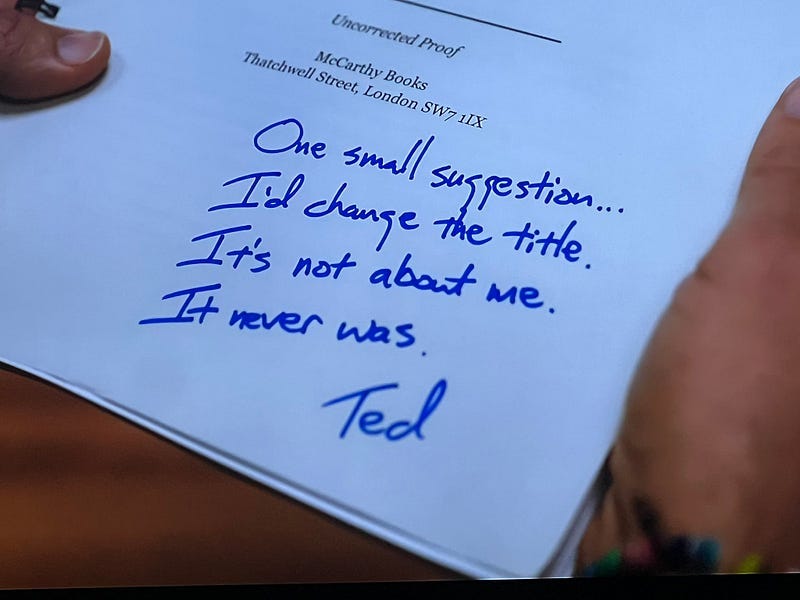 Uncorrected Proof
McCarthy Books
Thatchwell Street, London SW7 1IX
One small suggestion...
I'd change the title.
It's not about me.
It never was.
Ted